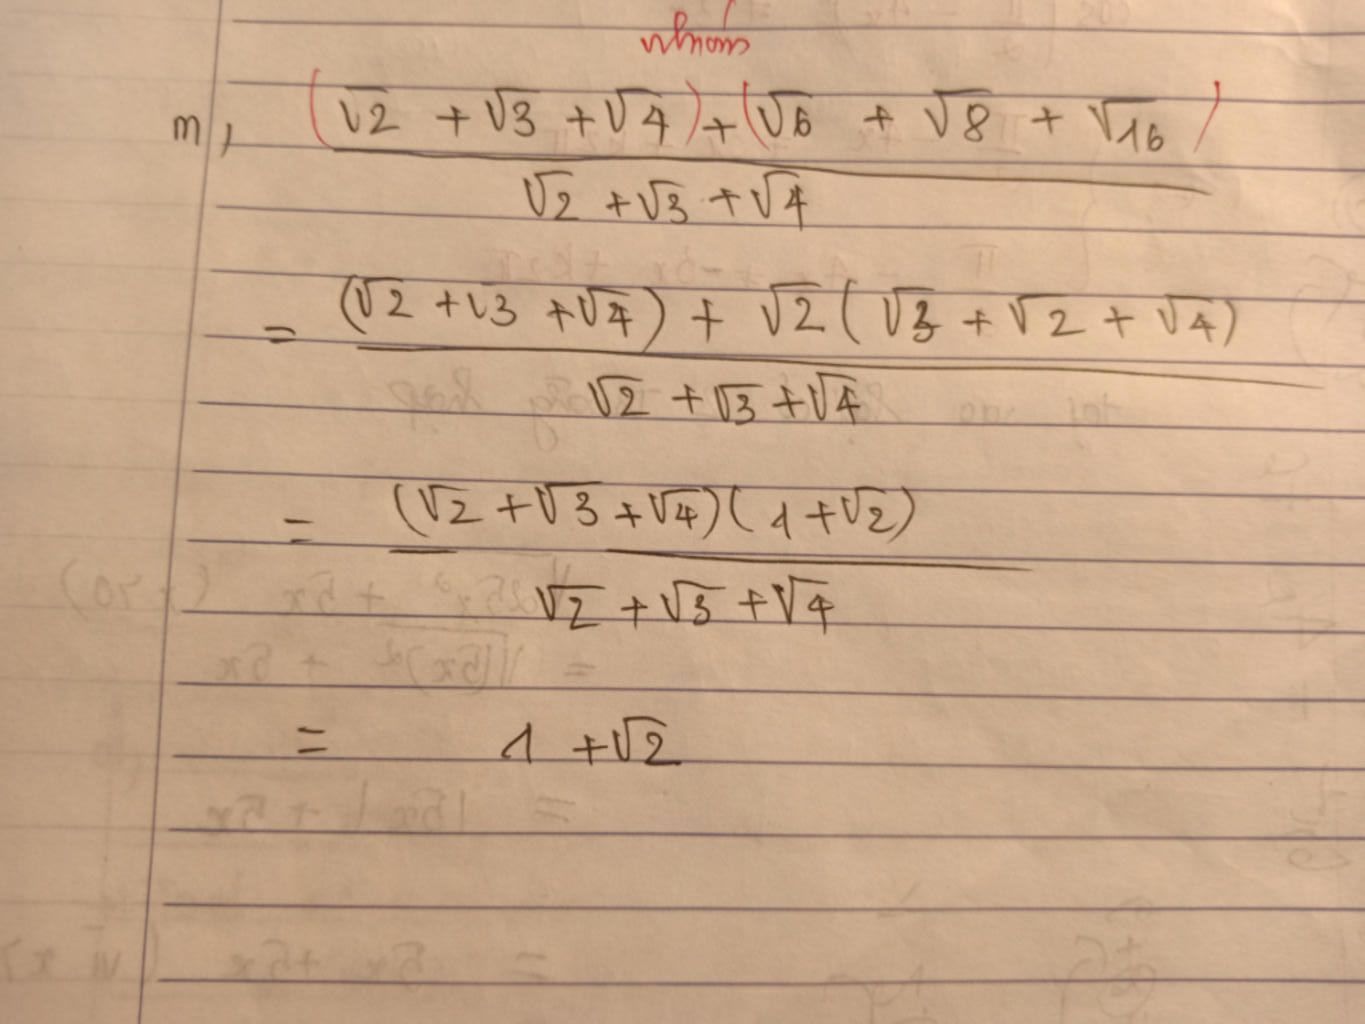 nhóm
m, (√2 + √3 + √4) + (√6 + √8 + √16)
√2 + √3 + √4
= (√2 + √3 + √4) + √2 (√3 + √2 + √4)
√2 + √3 + √4
= (√2 + √3 + √4)(1 + √2)
√2 + √3 + √4
= 1 + √2